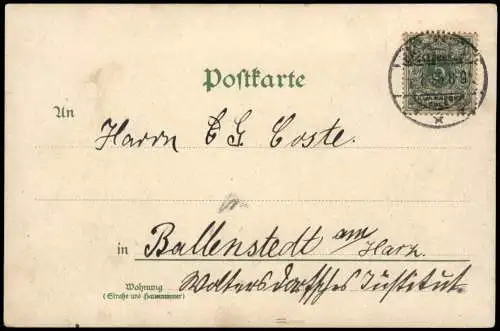 Postkarte
An
Herrn E G. Coste.
in Ballenstedt am Harz.
Wohnung
(Straße und Hausnummer)
Woltersdorfsches Institut.